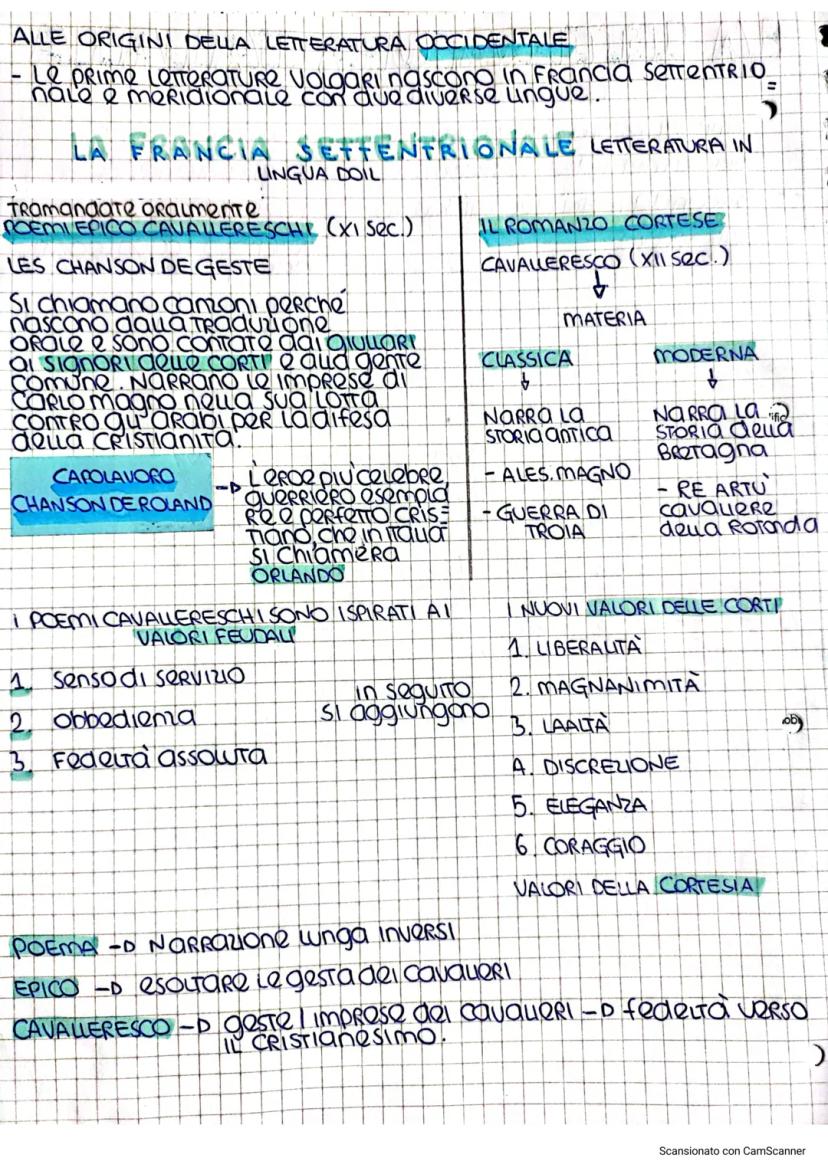 ALLE ORIGINI DELLA LETTERATURA OCCIDENTALE
- Le PRIME LETTERATURE VOLGARI nascono in Francia SETTENTRIO=
nale e meridionale con due diverse lingue.
LA FRANCIA SETTENTRIONALE LETTERATURA IN
LINGUA DOIL
Tramandate oralmente
POEMI EPICO CAVALLERESCHI (XI sec.)
LES CHANSON DE GESTE
Si chiamano canzoni perché
nascono dalla traduzione
orale e sono contate dai GIULLARI
ai SIGNORI delle CORTI e alla gente
comune. NARRANO le imprese di
CARLO magno nella sua lotta
contro gli ARABI per la difesa
della CRISTIANITÀ.
CAPOLAVORO
CHANSON DE ROLAND
-D L'eroe più celebre,
guerriero esempla
Re e perfetto CRIS=
Tiano, che in ITALIA
si chiamerà
ORLANDO
IL ROMANZO CORTESE
CAVALLERESCO (XII sec.)
MATERIA
CLASSICA
NARRA LA
STORIA ANTICA
- ALES. MAGNO
- GUERRA DI
TROIA
MODERNA
NARRA LA
STORIA della
Bretagna
- RE ARTÙ
cavaliere
della Rotonda
I POEMI CAVALLERESCHI SONO ISPIRATI AI
VALORI FEUDALI
1. senso di SERVIZIO
2. obbedienza
3. Fedeltà assoluta
in seguito
si aggiungono
I NUOVI VALORI DELLE CORTI
1. LIBERALITÀ
2. MAGNANIMITÀ
3. LAALTÀ
4. DISCREZIONE
5. ELEGANZA
6. CORAGGIO
VALORI DELLA CORTESIA
POEMA -D NARRAZIONE lunga INVERSI
EPICO -D esaltare le gesta dei cavalieri
CAVALLERESCO -D geste / imprese dei cavalieri -D fedeltà verso
IL CRISTIANESIMO.
Scansionato con CamScanner